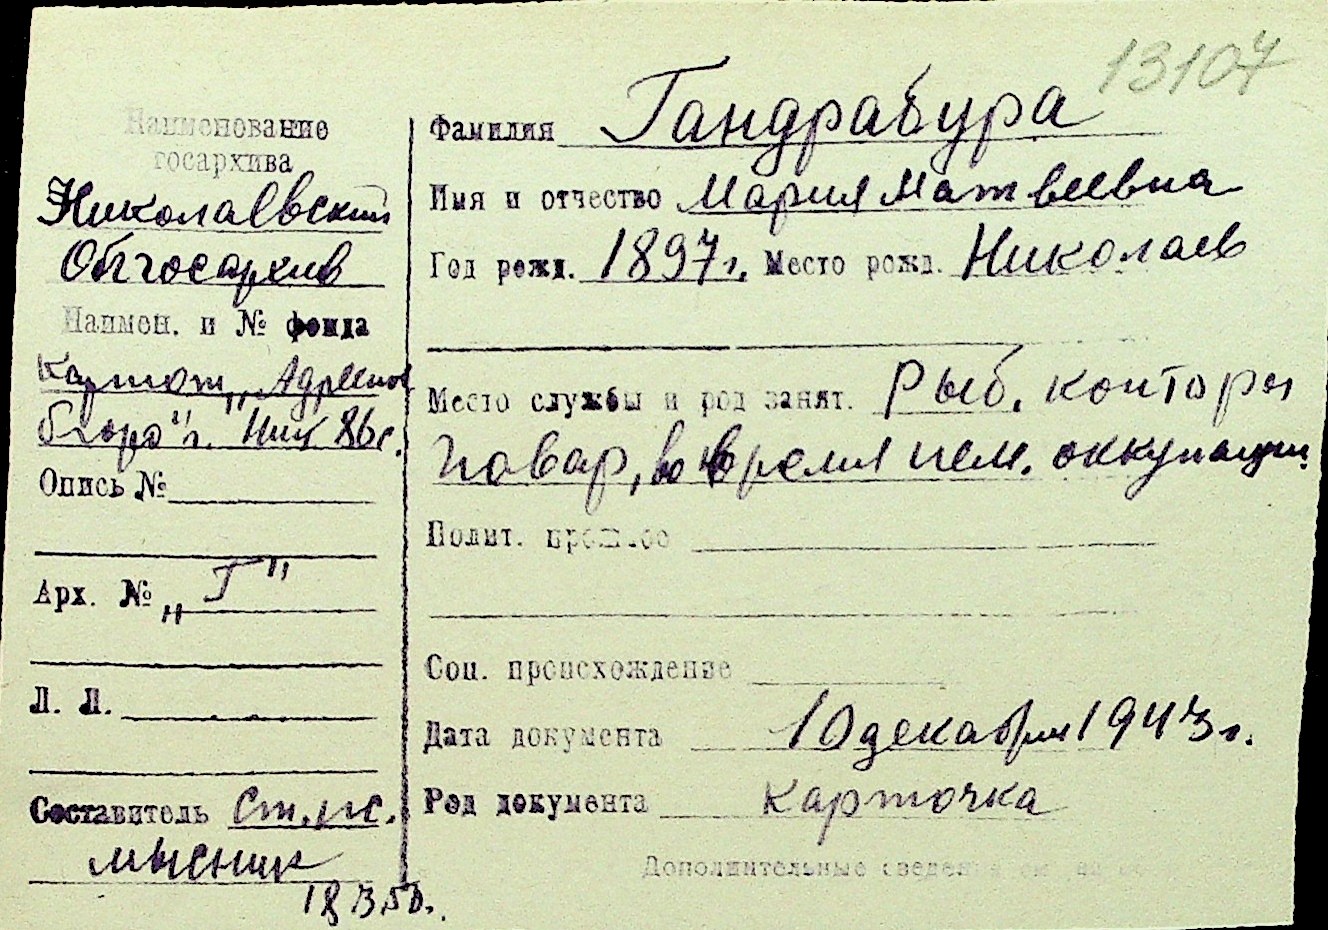 13107
Наименование
госархива
Николаевский
Облгосархив
Наимен. и № фонда
Картот. „Адресное
бюро" г.
Опись №
Арх. № „Г"
Л. Л.
Составитель Ст. н.с.
Мысник
18 3 50.
Фамилия Гандрабура
Имя и отчество Мария Матвеевна
Год рожд. 1897 г. Место рожд. Николаев
Место службы и род занят. Рыб. конторы
повар, во время нем. оккупации
Полит. прошлое
Соц. происхождение
Дата документа 10 декабря 1943 г.
Род документа карточка
Дополнительные сведения